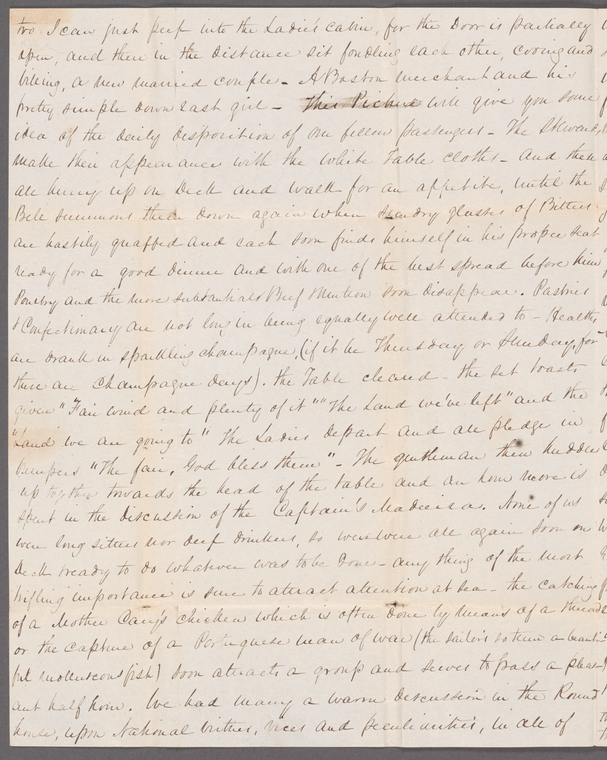 too I can just peep into the Ladie's cabin, for the Door is partially
open, and there in the distance sit fondling each other, cooing and
billing, a new married couple - A Boston merchant and his
pretty simple down east girl - This Picture will give you some
idea of the daily disposition of our fellow passengers - The Stewards
make their appearance with the White Table cloths - and then
all hurry up on Deck and walk for an appetite, until the
Bell summons them down again when sundry glasses of Bitters
are hastily quaffed and each soon finds himself in his proper seat
ready for a good Dinner and with one of the best spread before him
Poultry and the more substantials Beef Mutton soon disappear. Pastries
& Confectionary are not long in being equally well attended to - Healths
are drank in sparkling champagne, (if it be Thursday or Sunday, for
these are Champagne days). the Table cleared - the set toasts
given "Fair wind and plenty of it" "The Land we've left" and the
"Land we are going to" The Ladies depart and all pledge in
bumpers "The fair, God bless them" - The gentleman then huddle
up together towards the head of the table and an hour more is
spent in the discussion of the Captain's Madeira. None of us
were long sitters nor deep drinkers, so were all again soon on
Deck ready to do whatever was to be done - any thing of the most
trifling importance is sure to attract attention at sea - the catching
of a Mother Cary's chicken which is often done by means of a thread
or the capture of a Portuguese man of war (the sailor's term a beauti-
ful molluscous fish) soon attracts a group and serves to pass a pleas-
ant half hour. We had many a warm discussion in the Round
house, upon National virtues, vices and peculiarities, in all of